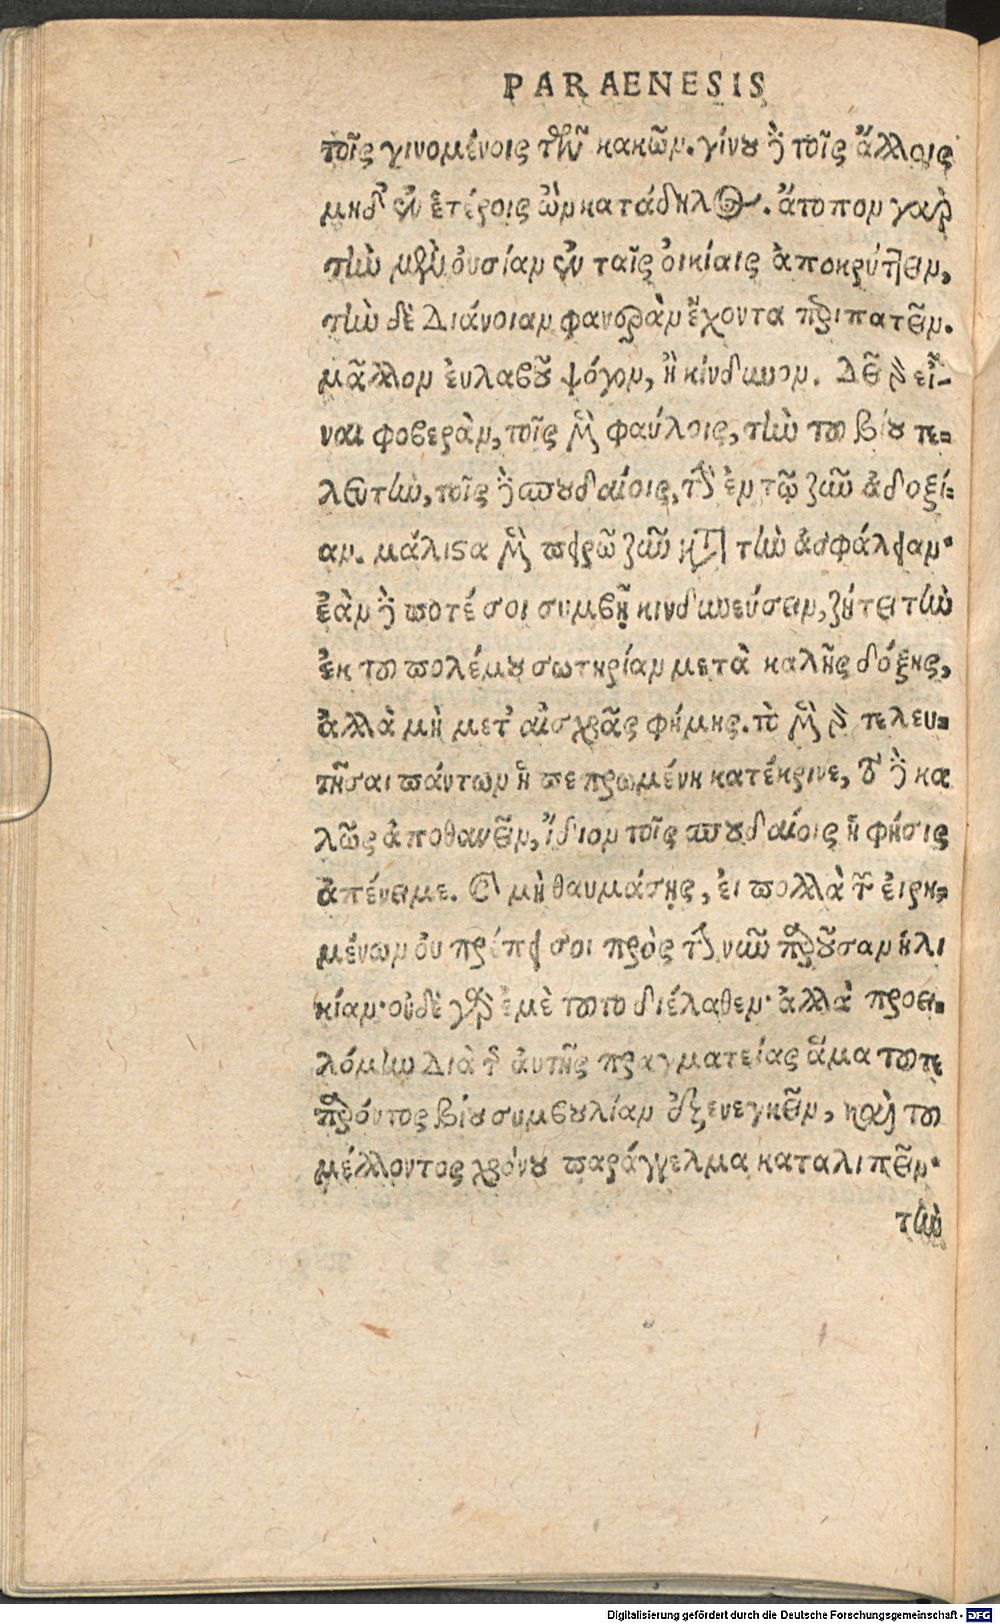 PARAENESIS
τοῖς γινομένοις τῶν κακῶν. γίνου δὲ τοῖς ἄλλοις
μηδ' ἐν ἑτέροις ὢν κατάδηλος. ἄτοπον γὰρ
τὴν μὲν οὐσίαν ἐν ταῖς οἰκίαις ἀποκρύπτειν,
τὴν δὲ διάνοιαν φανερὰν ἔχοντα περιπατεῖν.
μᾶλλον εὐλαβοῦ ψόγον, ἢ κίνδυνον. Δεῖ γὰρ εἶ-
ναι φοβερὰν, τοῖς μὲν φαύλοις, τὴν τοῦ βίου τε-
λευτὴν, τοῖς δὲ σπουδαίοις, τὴν ἐν τῷ ζῆν ἀδοξί-
αν. μάλιστα μὲν πειρῶ ζῆν κατὰ τὴν ἀσφάλειαν·
ἐὰν δὲ ποτέ σοι συμβῇ κινδυνεύσειν, ζήτει τὴν
ἐκ τοῦ πολέμου σωτηρίαν μετὰ καλῆς δόξης,
ἀλλὰ μὴ μετ' αἰσχρᾶς φήμης. τὸ μὲν γὰρ τελευ-
τῆσαι πάντων ἡ πεπρωμένη κατέκρινε, τὸ δὲ κα
λῶς ἀποθανεῖν, ἴδιον τοῖς σπουδαίοις ἡ φήσις
ἀπένειμε. Καὶ μὴ θαυμάσῃς, εἰ πολλὰ τῶν εἰρη-
μένων οὐ πρέπει σοι πρὸς τὴν νῦν παροῦσαν ἡλι
κίαν· οὐδὲ γὰρ ἐμὲ τοῦτο διέλαθεν· ἀλλὰ προει-
λόμην διὰ τῆς αὐτῆς πραγματείας ἅμα τοῦ τε
παρόντος βίου συμβουλίαν ἐξενεγκεῖν, καὶ τοῦ
μέλλοντος χρόνου παράγγελμα καταλιπεῖν·
τὴν
Digitalisierung gefördert durch die Deutsche Forschungsgemeinschaft - DFG